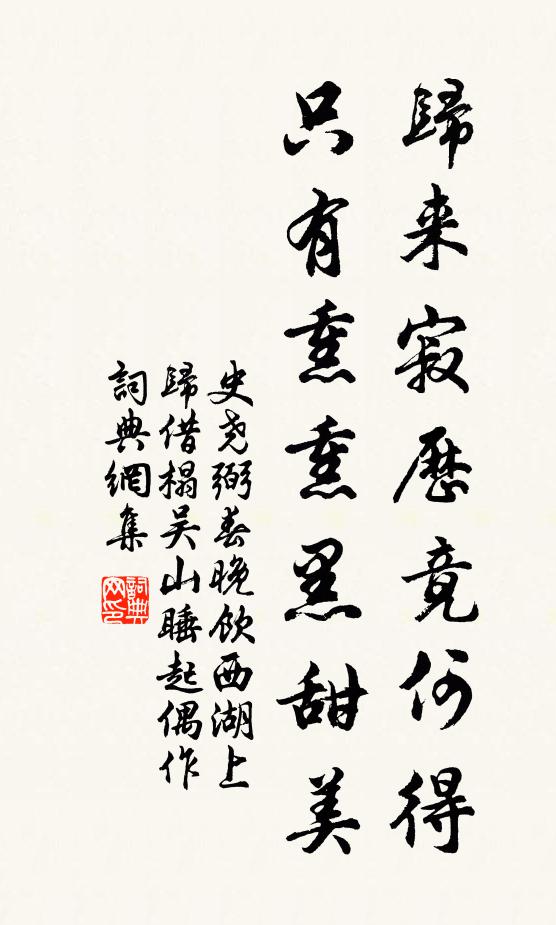 歸来寂歷竟何得
只有熏熏黑甜美
史尧弼春晚飲西湖上
歸借榻吴山睡起偶作
詞典網集
詞典網印